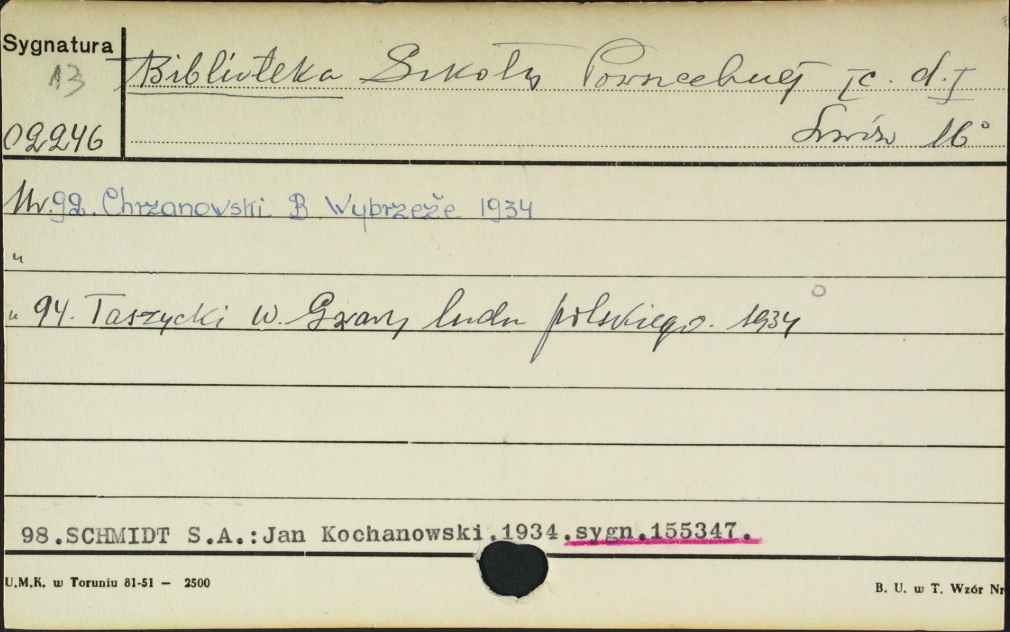 Sygnatura
A3
Biblioteka Szkoły Powszechnej Ic. d. I
02246
Lwów 16°
Nr. 92. Chrzanowski B. Wybrzeże 1934
"
" 94. Taszycki W. Gwary ludu polskiego. 1934
98.SCHMIDT S.A.:Jan Kochanowski.1934.sygn.155347.
U.M.K. w Toruniu 81-51 — 2500
B. U. w T. Wzór Nr